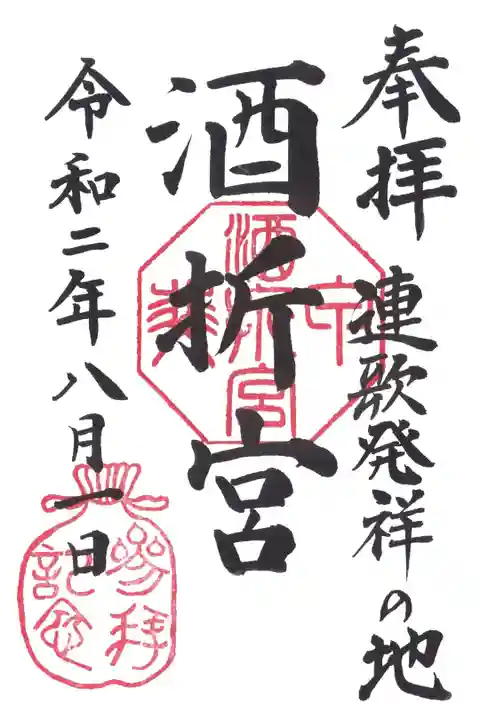 奉拝
連歌発祥の地
酒折宮
令和二年八月一日
酒折宮
参拝
記念